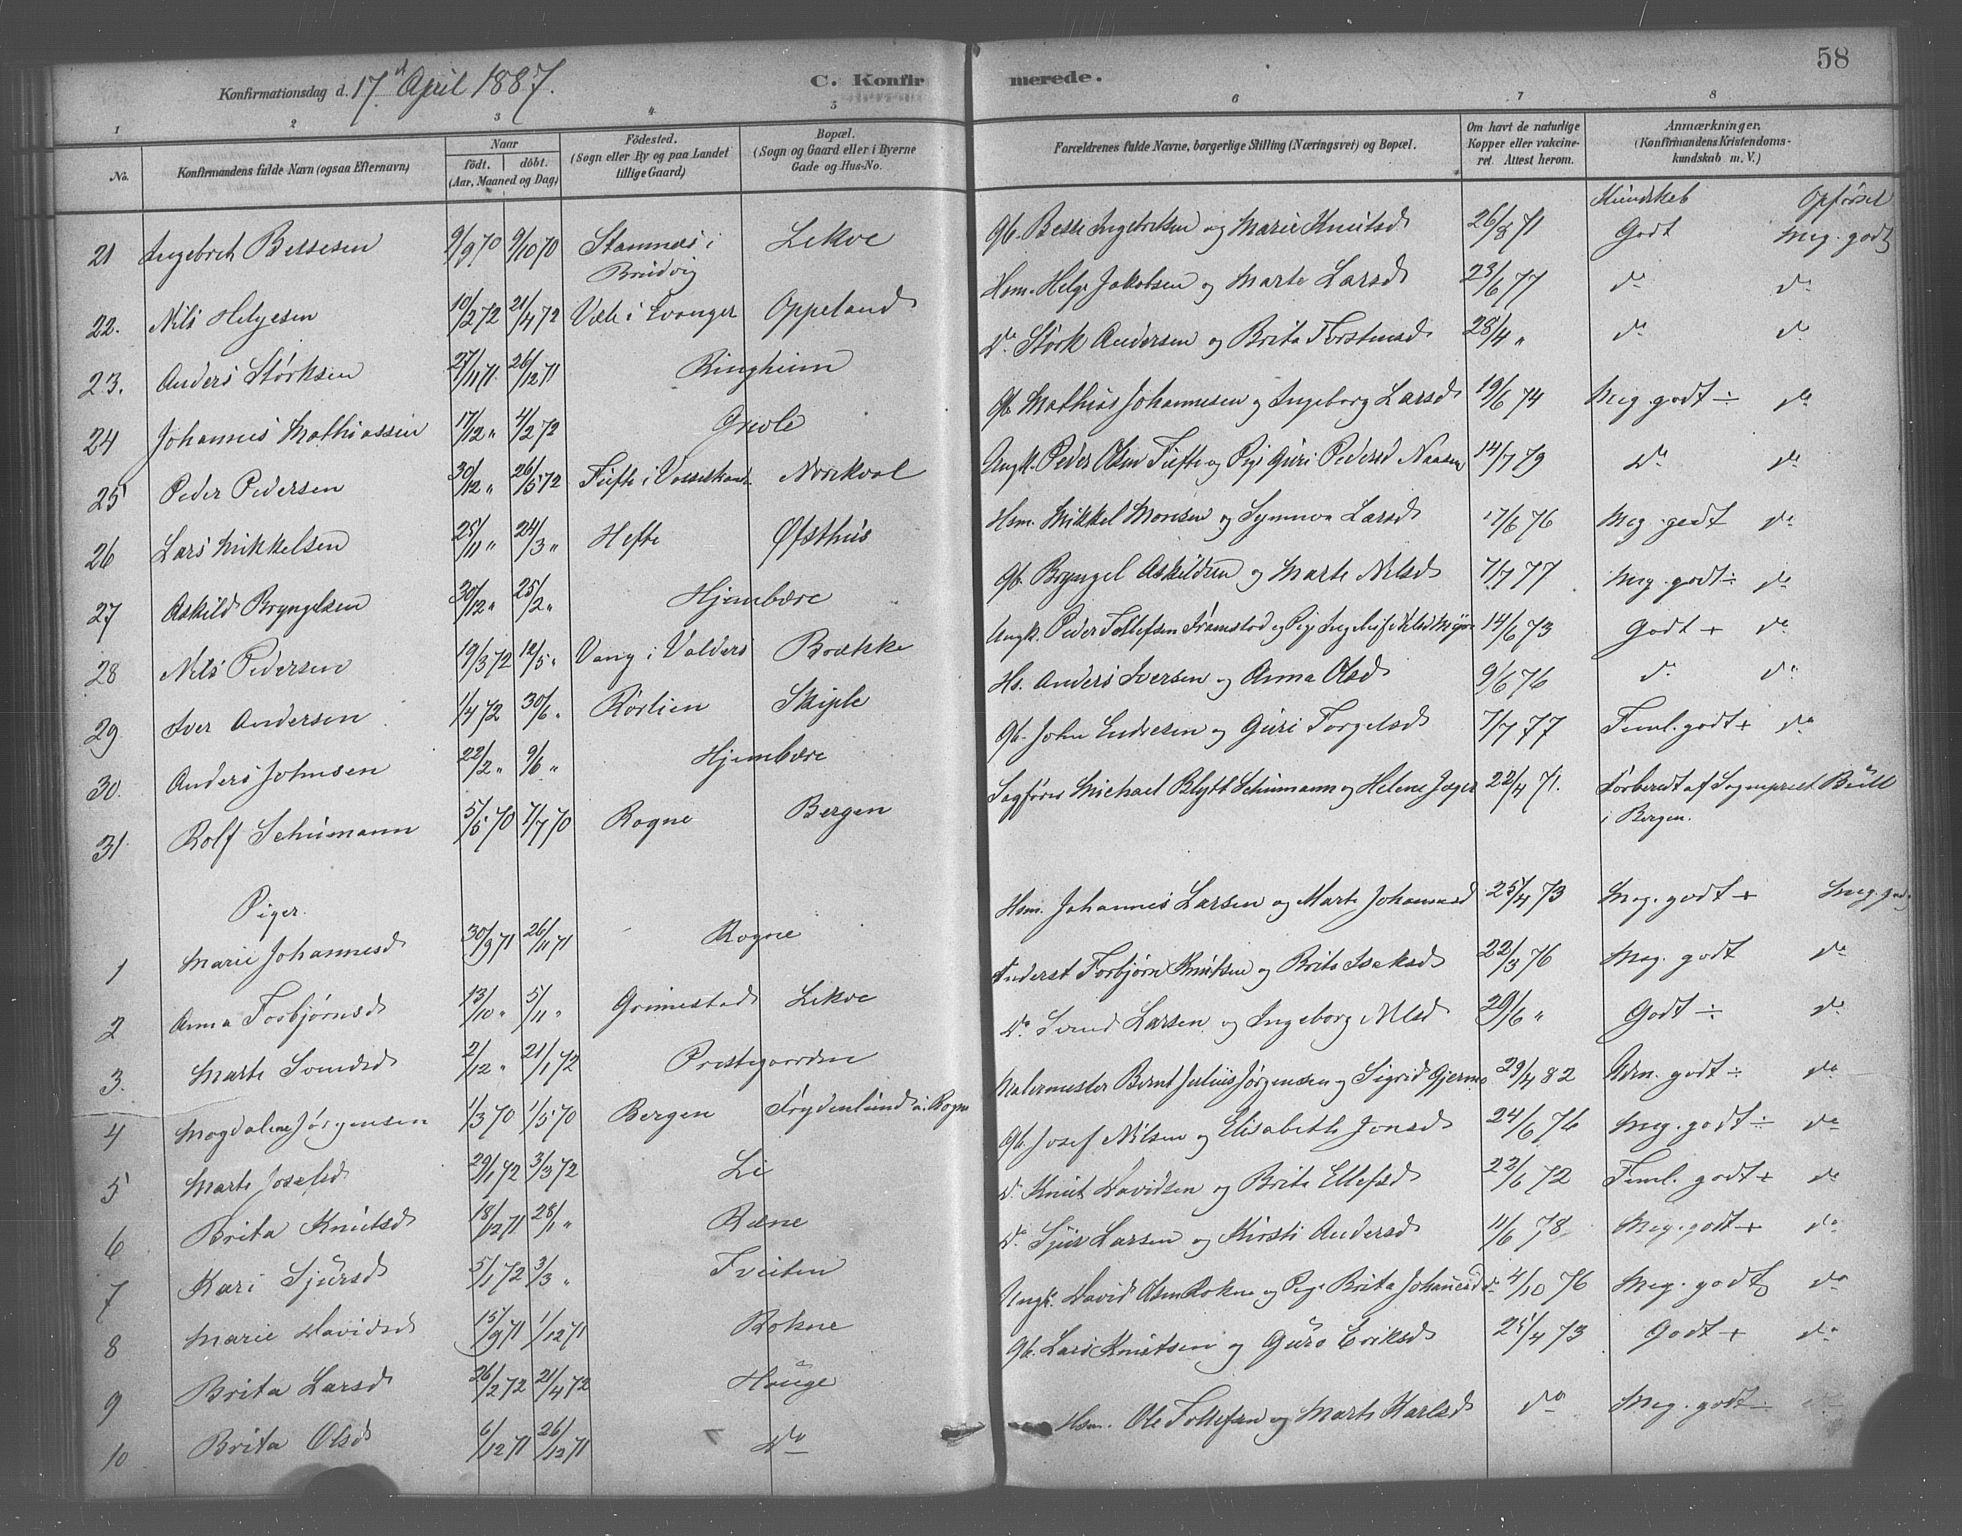 58
Konfirmationsdag d. 17d April 1887.
C. Konfir merede.
1 2 3 4 5 6 7 8
No. Konfirmandens fulde Navn (ogsaa Efternavn) Naar födt. döbt. (Aar, Maaned og Dag) Födested. (Sogn eller By og paa Landet tillige Gaard) Bopæl. (Sogn og Gaard eller i Byerne Gade og Hus-No. Forældrenes fulde Navne, borgerlige Stilling (Næringsvei) og Bopæl. Om havt de naturlige Kopper eller vakcineret. Attest herom. Anmærkninger. (Konfirmandens Kristendomskundskab m. V.)
Kundskab Opførsel
21 Ingebret Bessesen 9/9 70 9/10 70 Stamnes i Brudvig Lekve Gb. Besse Ingebretsen og Marie Knutsd 26/8 71 Godt Meg. godt
22. Nils Helgesen 10/2 72 21/4 72 Væle i Evanger Oppeland Hsm. Helge Jakobsen og Marte Larsd 23/6 77 do do
23. Anders Størksen 27/11 71. 26/12 71 Ringheim Do Størk Andersen og Brita Torstensd 28/4 " do do
24 Johannes Mathiassen 17/12 " 4/2 72 Grevle Gb. Mathias Johannesen og Ingeborg Larsd 19/6 74 Meg. godt ÷ do
25 Peder Pedersen 30/12 " 26/5 72 Tufte i Vossestrand Norekval Ungk. Peder Olsen Tufte og Pige Guri Pedersd 14/7 79 Do do
26 Lars Mikkelsen 25/11 " 24/3 " Hefte Øfsthus Hsm. Mikkel Monsen og Synneva Larsd 17/6 76 Meg. godt do
27 Askild Bryngelsen 30/12 " 25/2 " Hjembære Gb. Bryngel Askildsen og Marte Nilsd 7/7 77 Meg. godt ÷ do
28 Nils Pedersen 19/3 72 12/5 " Vang i Valders Brække Ungk. Peder Tollefsen og Pige 14/6 73 Godt + do
29 Iver Andersen 1/4 72 30/6 " Rørlien Skiple Hs. Anders Iversen og Anna Olsd 9/6 76 do do
30. Anders Johnsen 22/2 " 9/6 " Hjembære Gb. John Endresen og Guri Torgelsd 7/7 77 Teml. godt + do
31. Rolf Schumann 5/5 70 7/7 70 Rogne Bergen Sagfører Michael Blytt Schumann og Helene Jæger 22/4 71. Forberedt af Sognepræst Bull i Bergen.
Piger.
1 Marie Johannesd 30/9 71 26/11 71 Rogne Hsm. Johannes Larsen og Marte Johannesd 25/4 73 Meg. godt + Meg. godt
2 Anna Torbjørnsd 13/10 " 5/11 " Grimestad Lekve Inderst Torbjørn Knutsen og Brita Isaksd 22/3 76 Meg. godt do
3. Marte Svendsd 2/12 " 21/1 72 Prestegaarden Do Svend Larsen og Ingeborg Nilsd 29/6 " Godt ÷ do
4 Magdalene Jørgensen 1/3 70 1/5 70 Bergen Frydenlund u. Rogne Malermester Bernt Julius Jørgensen og Sigrid 29/4 82 Udm. godt ÷ do
5 Marte Josefsd 29/1 72 3/3 72 Li Gb. Josef Nilsen og Elisabeth Jonsd 24/6 76 Meg. godt ÷ do
6 Brita Knutsd 18/12 71 28/1 " Ræne Do Knut Davidsen og Brita Ellefsd 22/6 72 Teml. godt + do
7 Kari Sjursd 5/1 72 3/3 " Tveiten Do Sjur Larsen og Kirsti Andersd 11/6 78 Meg. godt + do
8 Marie Davidsd 15/9 71 1/12 71 Rokne Ungk. David Olsen Rokne og Pige Brita Johannesd do 4/10 76 Meg. godt do
9 Brita Larsd 26/2 72 21/4 72 Hauge Gb. Lars Knutsen og Guro Eriksd 25/4 73 Godt + do
10 Brita Olsd 6/12 71 26/12 71 Do Hsm. Ole Tollefsen og Marte Karlsd do Meg. godt do